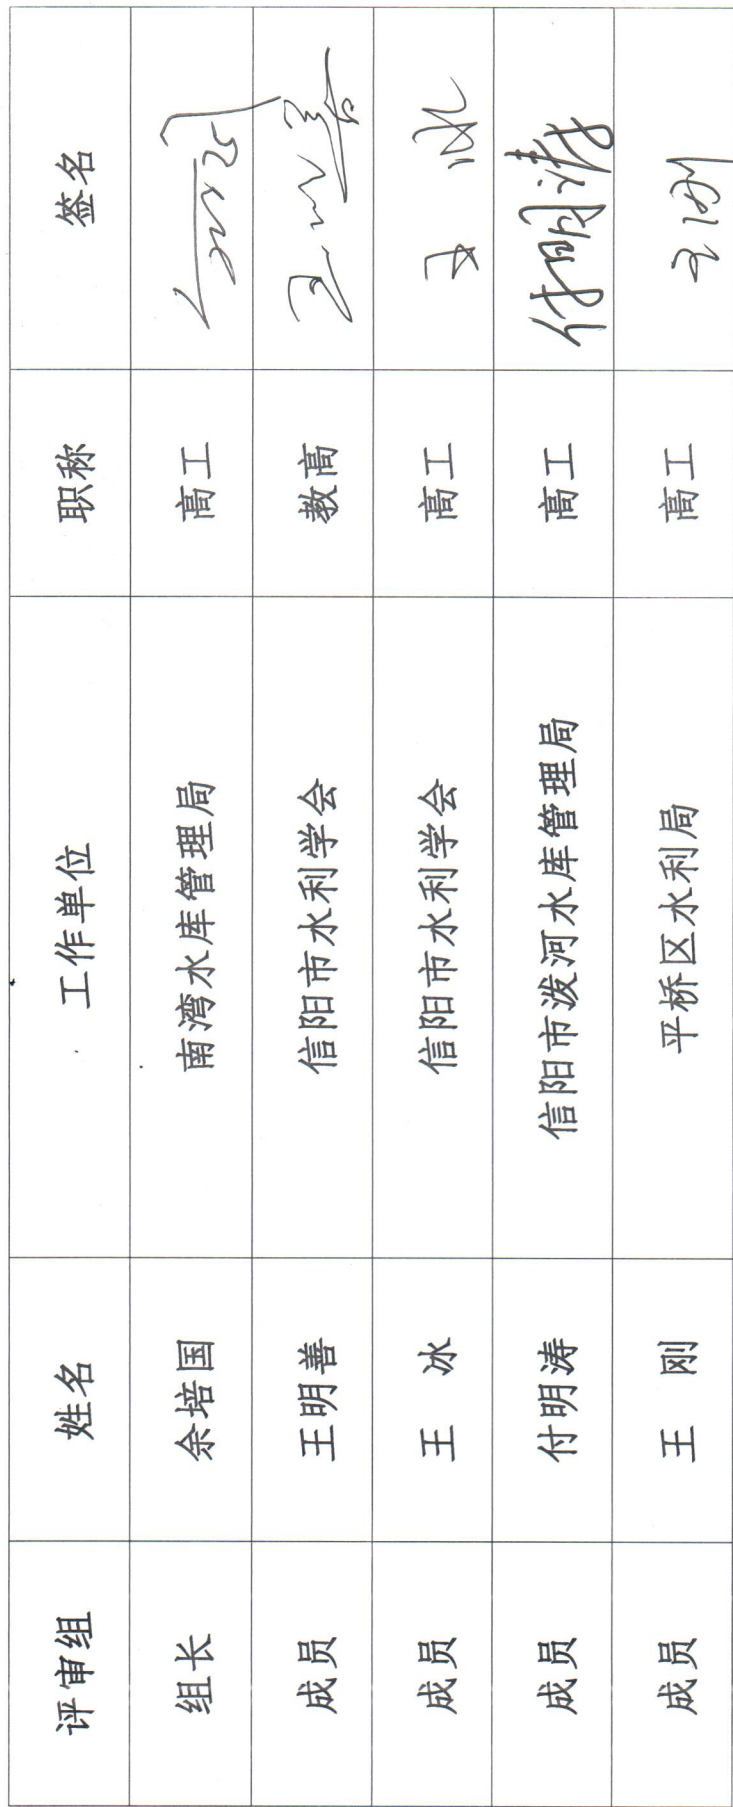 评审组 姓名 工作单位 职称 签名
组长 余培国 南湾水库管理局 高工
成员 王明善 信阳市水利学会 教高 王明善
成员 王 冰 信阳市水利学会 高工 王冰
成员 付明涛 信阳市泼河水库管理局 高工 付明涛
成员 王 刚 平桥区水利局 高工 王刚